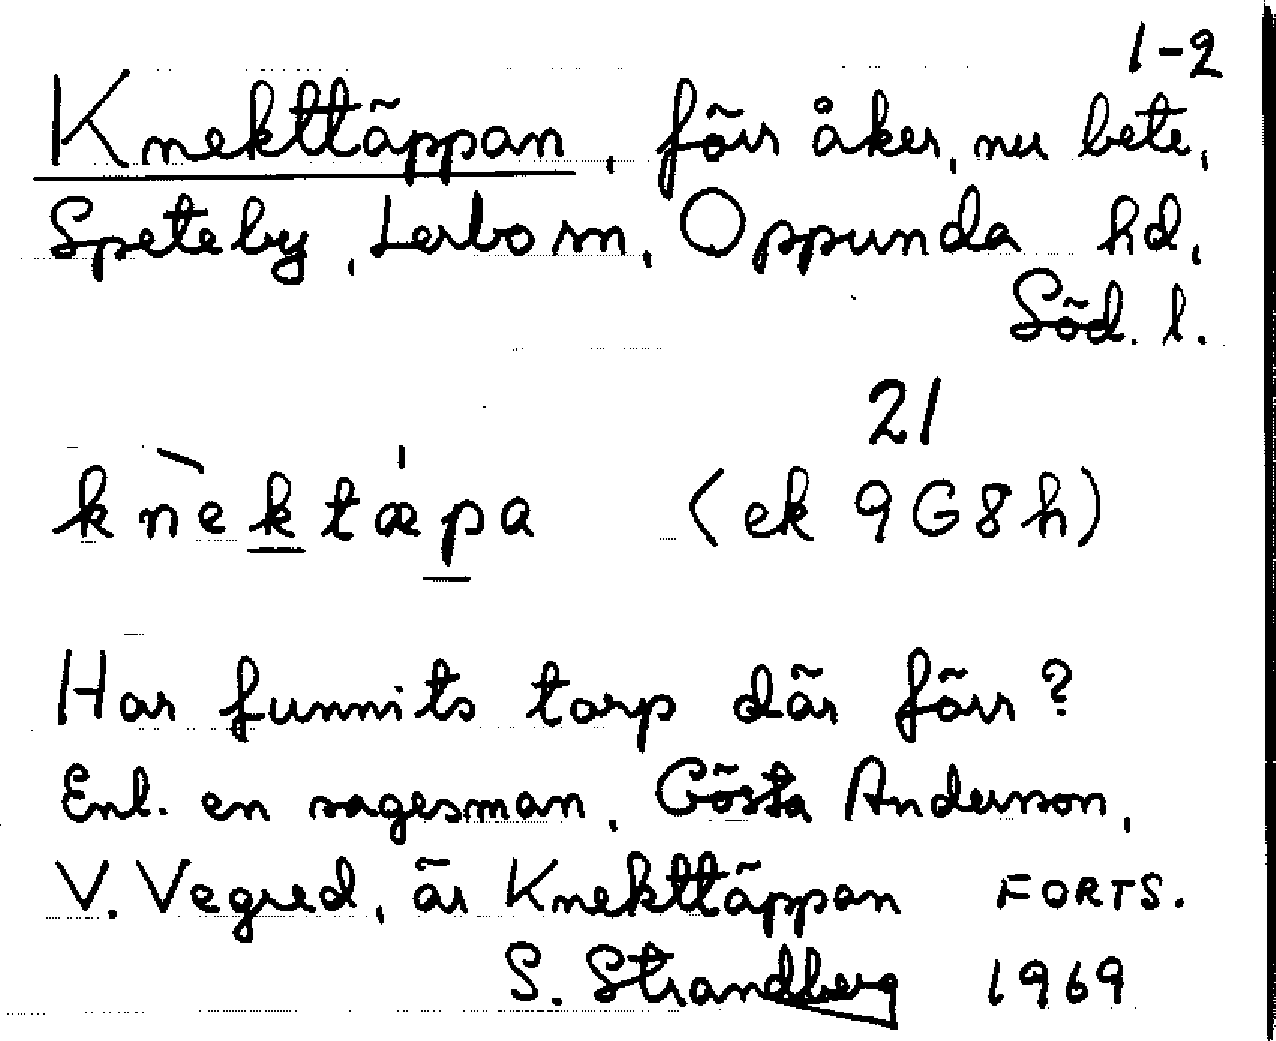 1-2
Knekttäppan, förr åker, nu bete,
Speteby, Lerbo sn, Oppunda hd,
Söd. l.
21
knèktæpa (ek 9G8h)
Har funnits torp där förr?
Enl. en sagesman, Gösta Andersson,
V. Vegred, är Knekttäppan FORTS.
S. Strandberg 1969